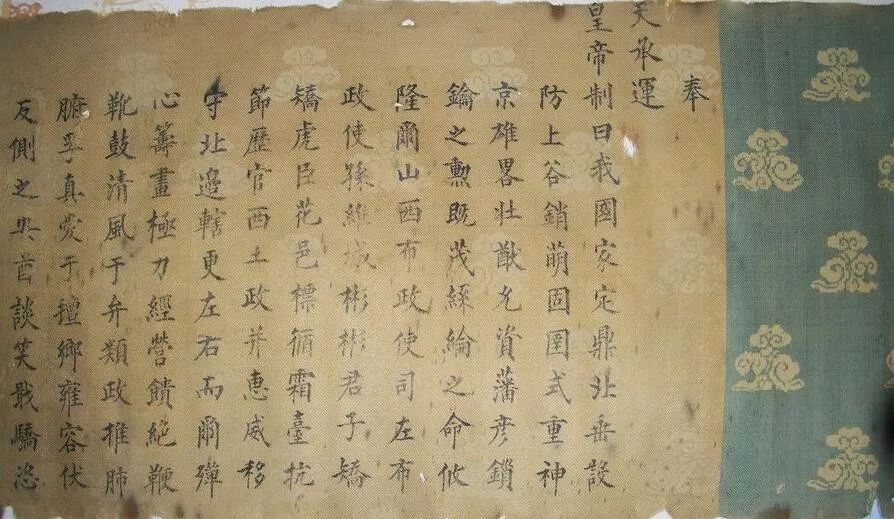 奉
天承運
皇帝制曰我國家定鼎北垂設
防上谷銷萌固圉式重神
京雄畧壯猷允資藩彥鎖
鑰之勲既茂絲綸之命攸
隆爾山西布政使司左布
政使孫維城彬彬君子矯
矯虎臣花邑標循霜臺抗
節歷官西土政并惠威移
守北邊轄更左右而爾殫
心籌畫極力經營饋絕鞭
靴鼓清風于弁類政推肺
腑孚真愛于鄉雍容伏
反側之酋談笑戢驕恣